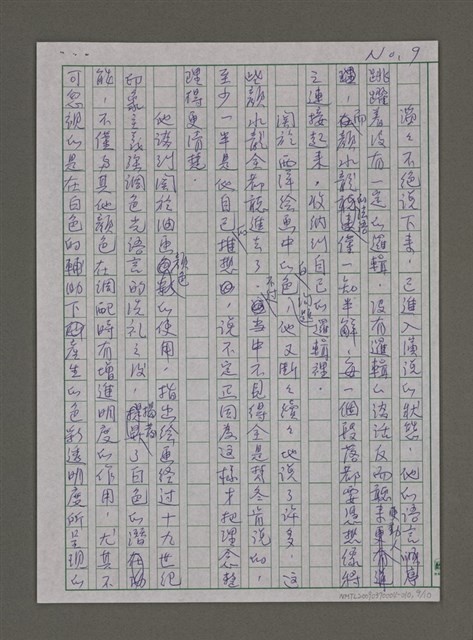 No, 9
滔々不絕說下來，已進入演說的狀態，他的語言順序
跳躍着沒有一定的邏輯，沒有邏輯的談話反而聽來更動人
顏水龍一知半解，每一個段落都要憑想像將
之連接起來，收納到自己的邏輯裡。
關於西洋繪畫中白的問題，他又斷々續々地說了許多，這
些顏水龍全都聽進去了，不過當中不見得全是梵谷肯說的，
至少一半是他自己的推想，說不定正因為這樣才把理念整
理得更清楚。
他談到關於油畫顏色的使用，指出繪畫經過十九世紀
印象主義強調色光語言的洗禮之後，提昇了白色的潛
能，不僅與其他顏色在調配時有增進明度的作用，尤其不
可忽視的是在白色的輔助下產生的色彩透明度所呈現的